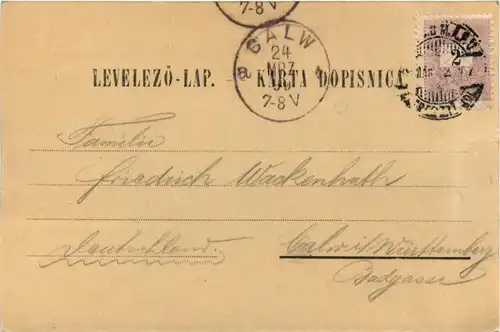 7-8 V
CALW
24
MRZ
7-8 V
LEVELEZŐ-LAP. KARTA DOPISNICA
Familie
Friedrich Wackenhuth
Deutschland. Calw i/Württemberg
Badgasse